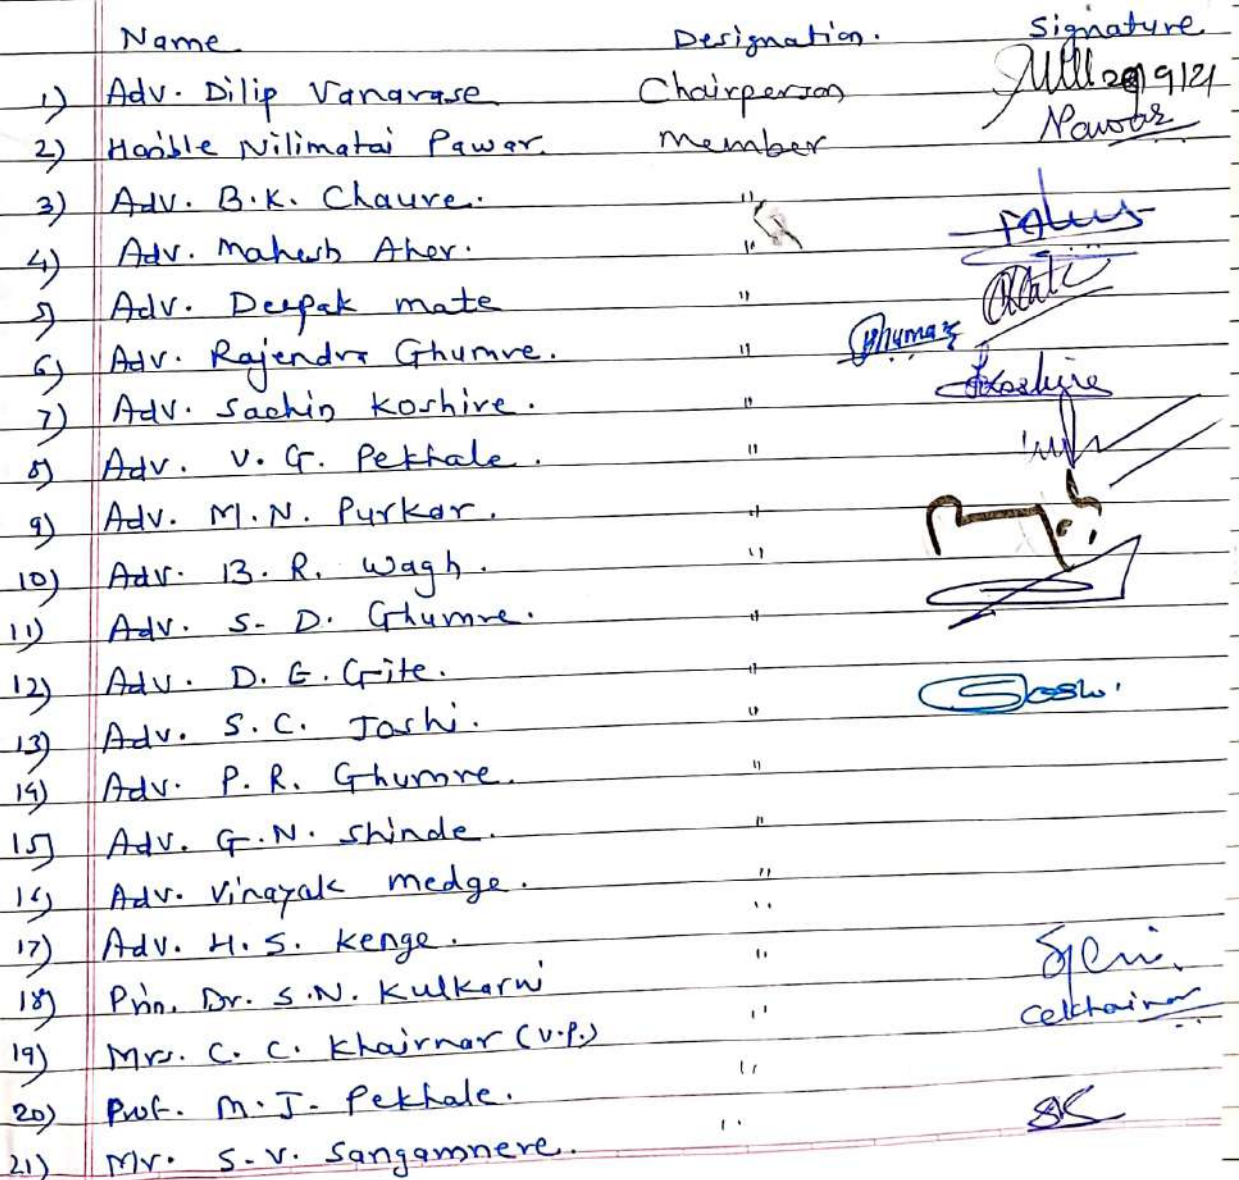 Name Designation. Signature
1) Adv. Dilip Vanarase Chairperson 9/21
2) Hon'ble Nilimatai Pawar. Member Nawar
3) Adv. B.K. Chaure. "
4) Adv. Mahesh Aher. "
5) Adv. Deepak mate "
6) Adv. Rajendra Ghumre. "
7) Adv. Sachin Koshire. " Koshire
8) Adv. V. G. Pekhale. "
9) Adv. M.N. Purkar. "
10) Adv. B. R. Wagh. "
11) Adv. S. D. Ghumre. "
12) Adv. D. E. Gite. "
13) Adv. S. C. Joshi. "
14) Adv. P. R. Ghumre. "
15) Adv. G.N. Shinde. "
16) Adv. Vinayak medge. "
17) Adv. H. S. Kenge. "
18) Prin. Dr. S.N. Kulkarni "
19) Mrs. C. C. Khairnar (V.P.) " CCKhairnar
20) Prof. M. J. Pekhale. "
21) Mr. S. V. Sangamnere. "